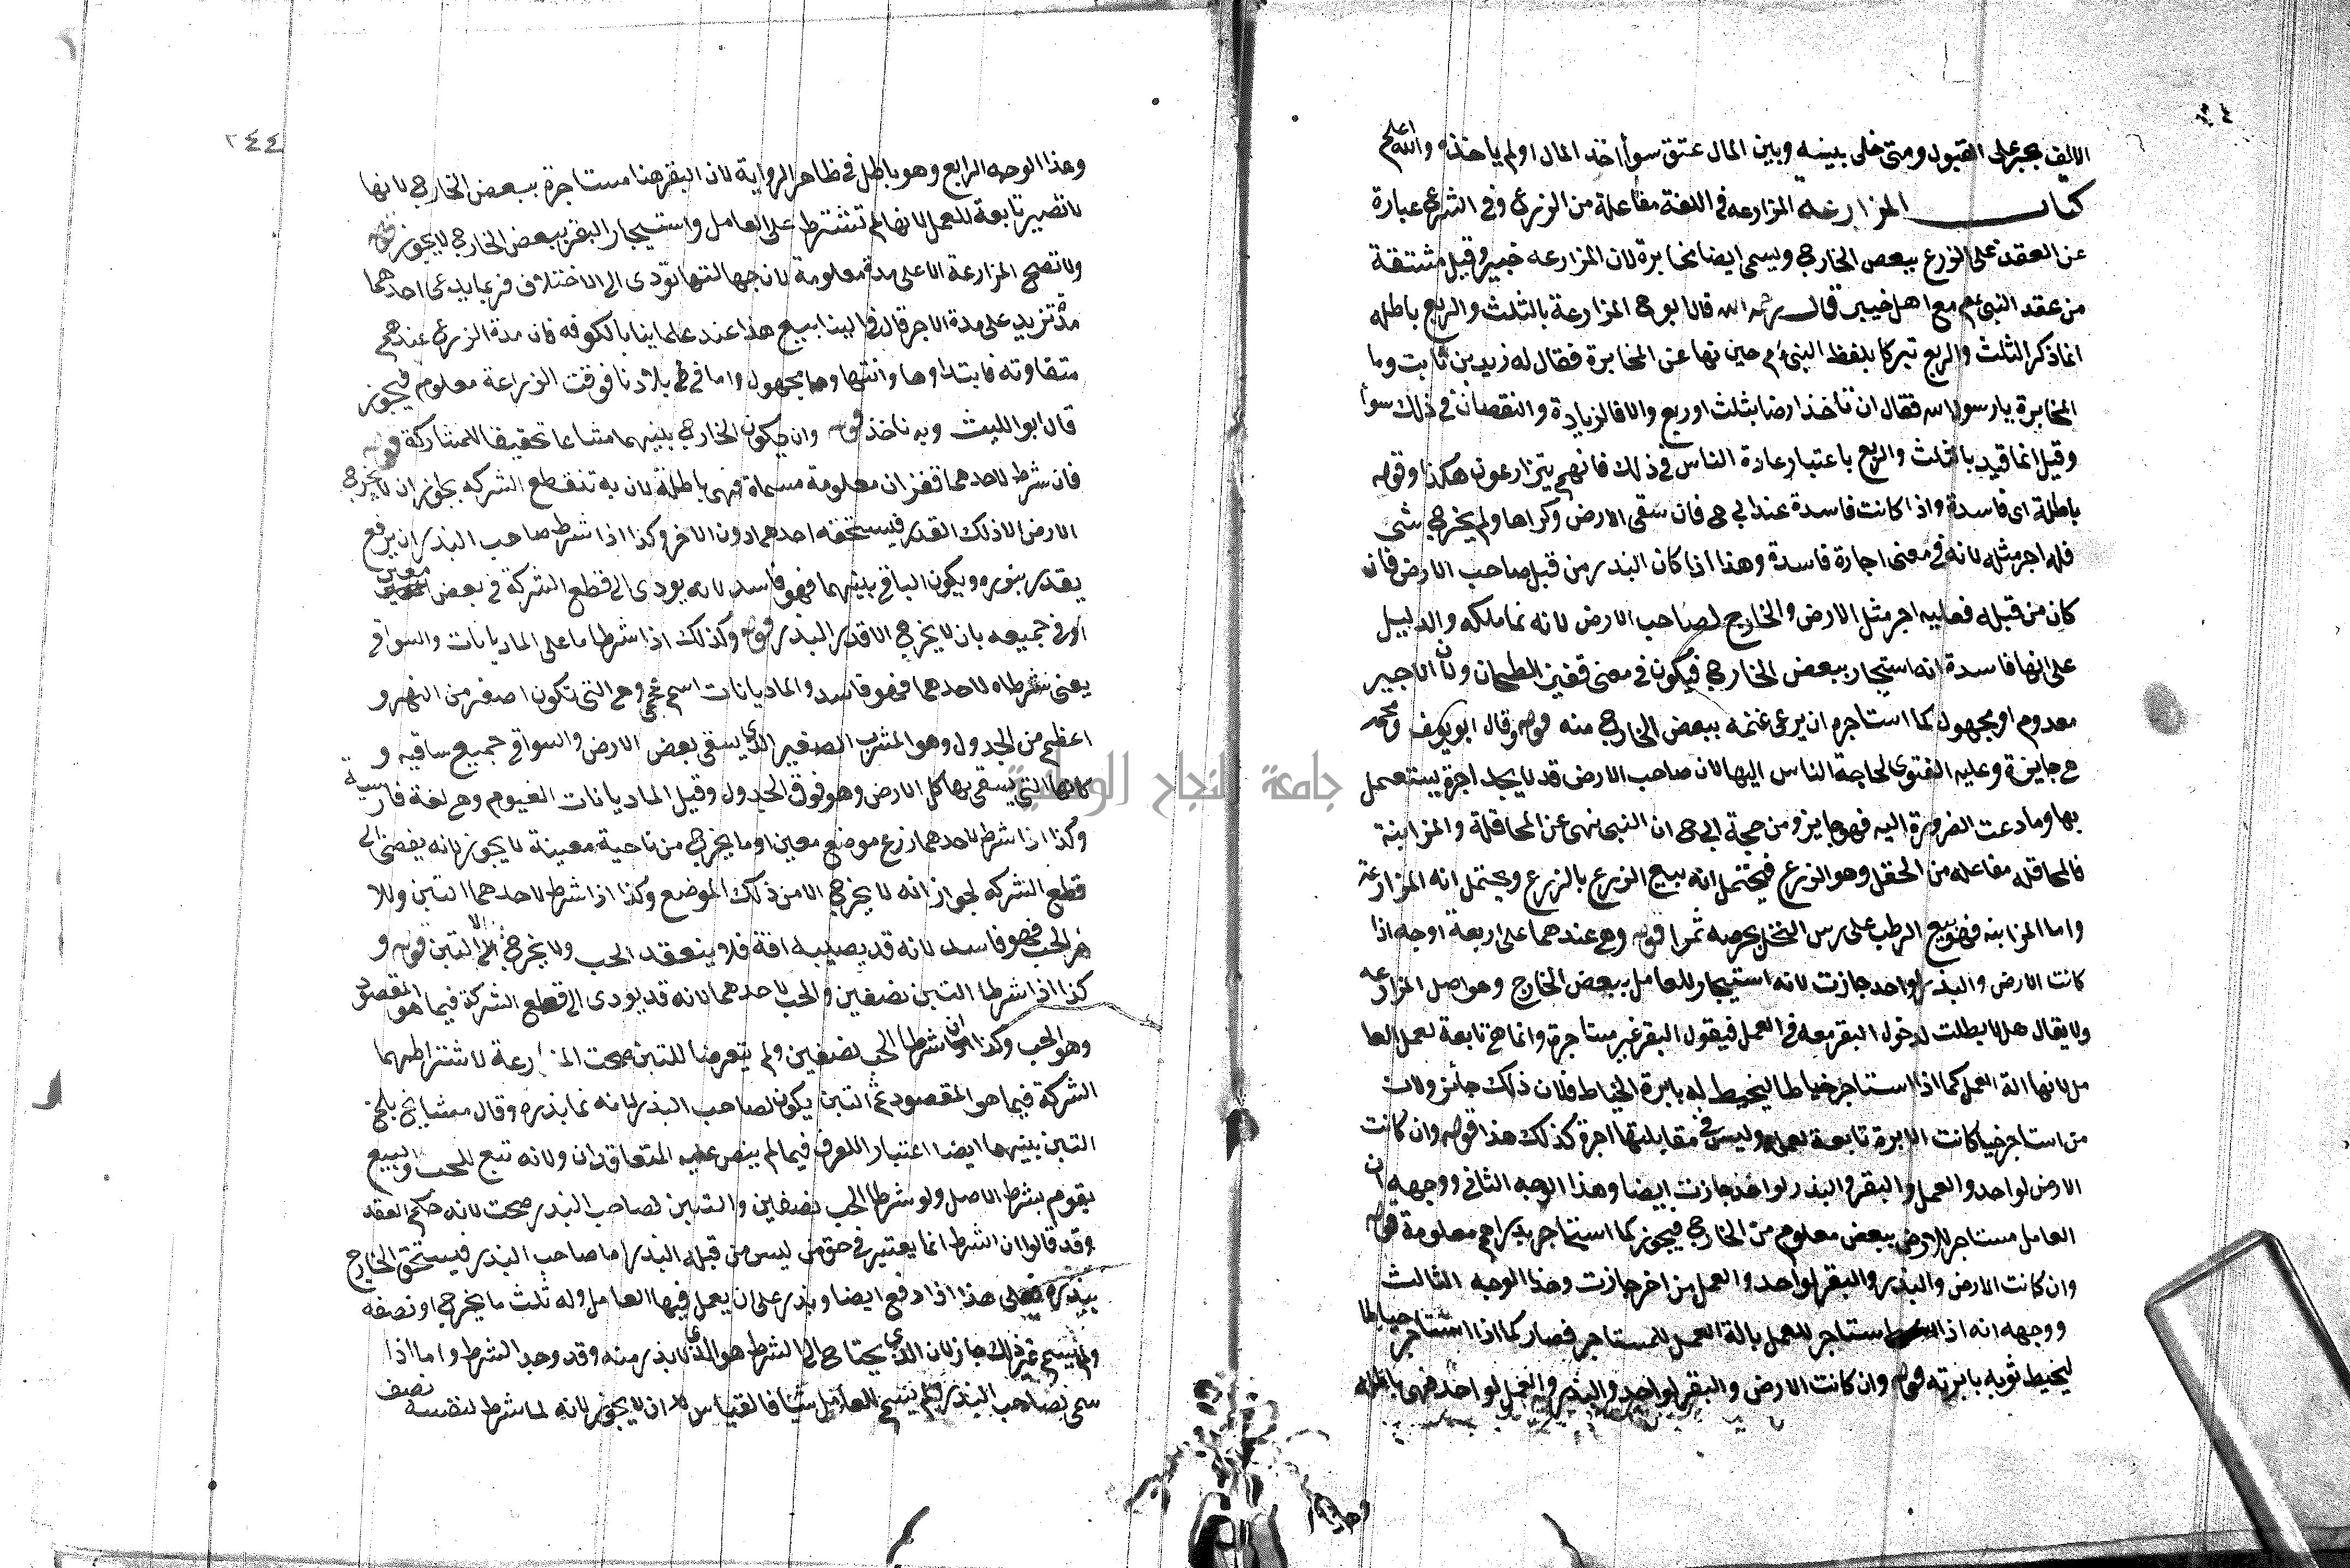 الالف يجبر على القبول ومتى خلى بينه وبين المال عتق سوأ اخذ المال او لم ياخذه والله اعلم
كتاب المزارعه المزارعه في اللغة مفاعلة من الزرع وفي الشرع عبارة
عن العقد على الزرع ببعض الخارج ويسمى ايضا مخابرة لان المزارعه خبير وقيل مشتقة
من عقد النبي ءم مع اهل خيبر قال رحمه الله قال ابو ح المزارعة بالثلث والربع باطله
انما ذكر الثلث والربع تبركا بلفظ النبي ءم حين نها عن المخابرة فقال له زيد بن ثابت وما
المخابرة يارسول الله فقال ان تاخذ ارضا بثلث او ربع والا فالزيادة والنقصان في ذلك سوأ
وقيل انما قيد بالثلث والربع باعتبار عادة الناس في ذلك فانهم يتزارعون هكذا وقوله
باطلة اى فاسدة واذا كانت فاسدة عند ابي ح فان سقى الارض وكراها ولم يخرج شى
فله اجر مثله لانه في معنى اجارة فاسدة وهذا اذا كان البذر من قبل صاحب الارض فان
كان من قبله فعليه اجر مثل الارض والخارج لصاحب الارض لانه نما ملكه والدليل
على انها فاسدة انه استيجار ببعض الخارج فيكون في معنى قفيز الطحان ولان الاجير
معدوم او مجهول كما استاجره ان يرعى غنمه ببعض الخارج منه قوله وقال ابو يوسف ومحمد
هى جايزة وعليه الفتوى لحاجة الناس اليها لان صاحب الارض قد لا يجد اجرة يستعمل
بها وما دعت الضرورة اليه فهو جايز ومن حجة ابي ح ان النبي نهى عن المحاقلة والمزابنة
فالمحاقله مفاعله من الحقل وهو الزرع فيحتمل انه بيع الزرع بالزرع ويحتمل انه المزارعة
واما المزابنه فهو بيع الرطب على رس النخل بخرصه تمرا قوله وهى عندهما على اربعة اوجه اذا
كانت الارض والبذر لواحد جازت لانه استيجار للعامل ببعض الخارج وهو اصل المزارعه
ولا يقال هلا بطلت لدخول البقر معه في العمل فيقول البقر غير مستاجرة وانما هى تابعة لعمل العا
مل لانها الة العمل كما اذا استاجر خياطا ليخيط له بابرة الخياط فلان ذلك جائز ولان
من استاجر خيا كانت الابرة تابعة لعمله وليس في مقابلتها اجرة كذلك هذا قوله وان كانت
الارض لواحد والعمل والبقر والبذر لواحد جازت ايضا وهذا الوجه الثاني ووجهه ان
العامل مستاجر للارض ببعض معلوم من الخارج فيجوز كما استاجر بدراهم معلومة قوله
وان كانت الارض والبذر والبقر لواحد والعمل من اخر جازت وهذا الوجه الثالث
ووجهه انه اذا استاجر للعمل بالة العمل للمستاجر فصار كما اذا استاجر خياطا
ليخيط ثوبه بابرته قوله وان كانت الارض والبقر لواحد والبذر والعمل لواحد فهى باطله
٢٤٤
وهذا الوجه الرابع وهو باطل في ظاهر الرواية لان البقر هنا مستاجرة ببعض الخارج لانها
لا تصير تابعة للعمل لانها لم تشترط على العامل واستيجار البقر ببعض الخارج لا يجوز قوله
ولا تصح المزارعة الا على مدة معلومة لان جهالتها تودى الى الاختلاف فربما يدعى احدهما
مدة تزيد على مدة الاخر قال في الينابيع هذا عند علماينا بالكوفه فان مدة الزرع عندهم
متفاوته فابتداوها وانتهاوها مجهول واما في بلادنا فوقت الزراعة معلوم فيجوز
قال ابو الليث وبه ناخذ قوله وان يكون الخارج بينهما مشاعا تحقيقا للمشاركة قوله
فان شرط لاحدهما قفزان معلومة مسماة فهى باطلة لان به تنقطع الشركه بجواز ان لا يخرج
الارض الا ذلك القدر فيستحقه احدهما دون الاخر وكذا اذا شرط صاحب البذر ان يرفع
بقدر بذره ويكون الباقي بينهما فهو فاسد لانه يودى الى قطع الشركة في بعض معين
او في جميعه بان لا يخرج الا قدر البذر قوله وكذلك اذا شرطا ما على الماديانات والسواقي
يعنى شرطاه لاحدهما فهو فاسد والماديانات اسم عجمى وهى التى تكون اصغر من النهر و
اعظم من الجدول وهو المشرب الصغير الذى يسقى بعض الارض والسواقي جميع ساقيه و
كانها التي يسقى بها كل الارض وهو فوق الجدول وقيل الماديانات الغيوم وهى لغة فارسية
وكذا اذا شرط لاحدهما زرع موضع معين او ما يخرج من ناحية معينة لا يجوز لانه يفضى الى
قطع الشركه لجواز انه لا يخرج الا من ذلك الموضع وكذا اذا شرط لاحدهما التبن وللا
خر الحب فهو فاسد لانه قد يصيبه افة فلا ينعقد الحب ولا يخرج الا التبن قوله و
كذا اذا شرطا التبن نصفين والحب لاحدهما لانه قد يودى الى قطع الشركة فيما هو المقصود
وهو الحب وكذا ان شرطا الحب نصفين ولم يتعرضا للتبن صحت المزارعة لاشتراطهما
الشركة فيما هو المقصود ثم التبن يكون لصاحب البذر لانه نما بذره وقال مشايخ بلخ
التبن بينهما ايضا اعتبارا للعرف فيما لم ينص عليه المتعاقدان ولانه تبع للحب والتبع
يقوم بشرط الاصل ولو شرطا الحب نصفين والتبن لصاحب البذر صحت لانه حكم العقد
وقد قالوا ان الشرط انما يعتبر في حق من ليس من قبله البذر اما صاحب البذر فيستحق الخارج
ببذره فعلى هذا اذا دفع ايضا وبذر على ان يعمل فيها العامل وله ثلث ما يخرج او نصفه
ولم يسم غير ذلك جاز لان الذى يحتاج الى الشرط هو الذى لا بذر منه وقد وجد الشرط واما اذا
سمى لصاحب البذر ولم يسم للعامل شيا فالقياس ان لا يجوز لانه لما شرط لنفسه نصف
جامعة النجاح الوطنية